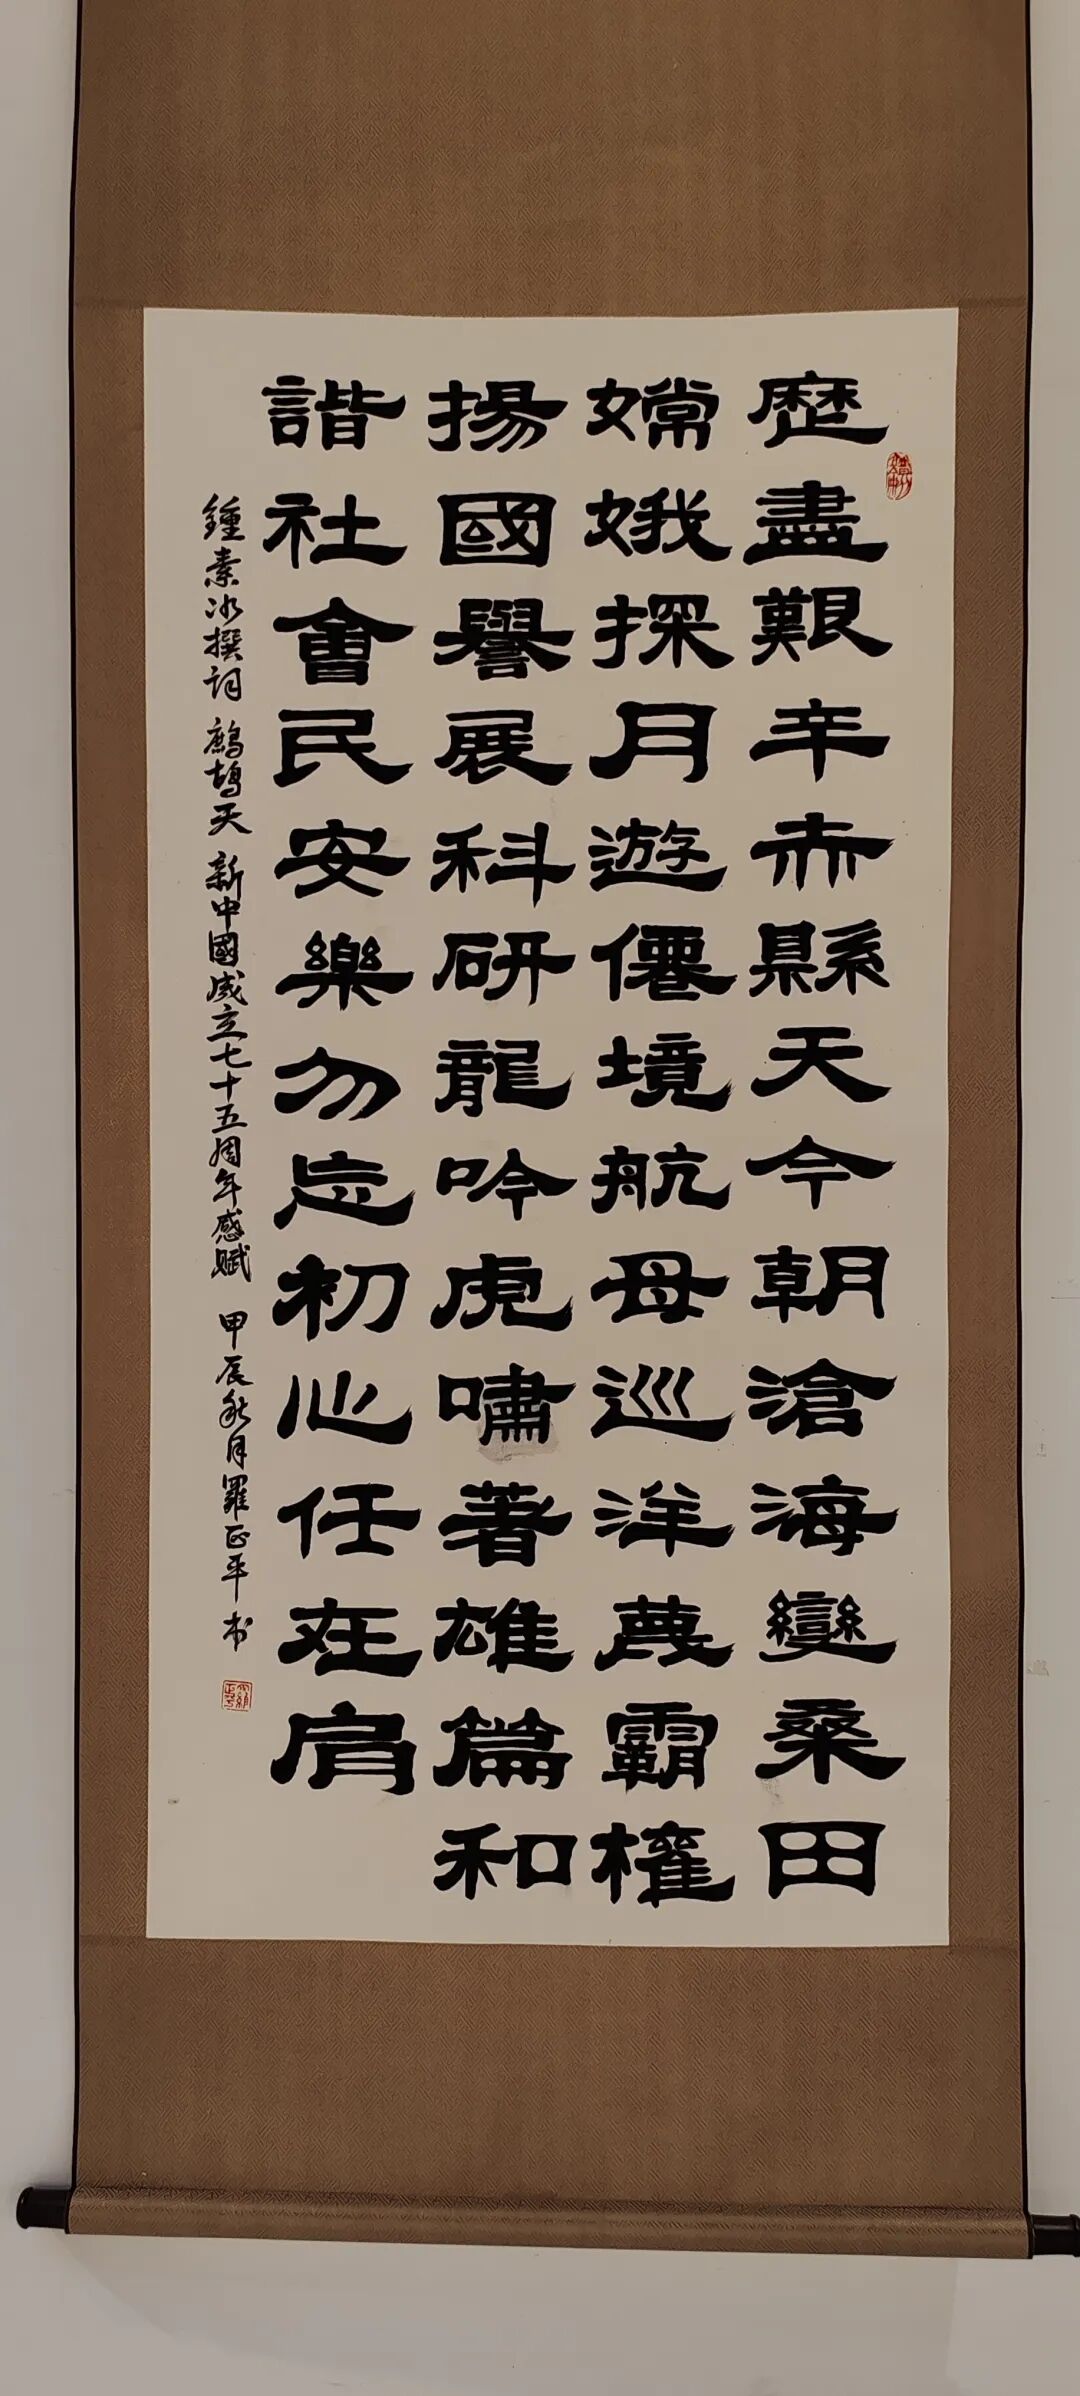 歷盡艱辛赤縣天今朝滄海變桑田
嫦娥探月遊僊境航母巡洋蔑霸權
揚國譽展科研龍吟虎嘯著雄篇和
諧社會民安樂勿忘初心任在肩
鍾素冰撰詞 鷓鴣天 新中國成立七十五周年感賦 甲辰秋月羅正平书